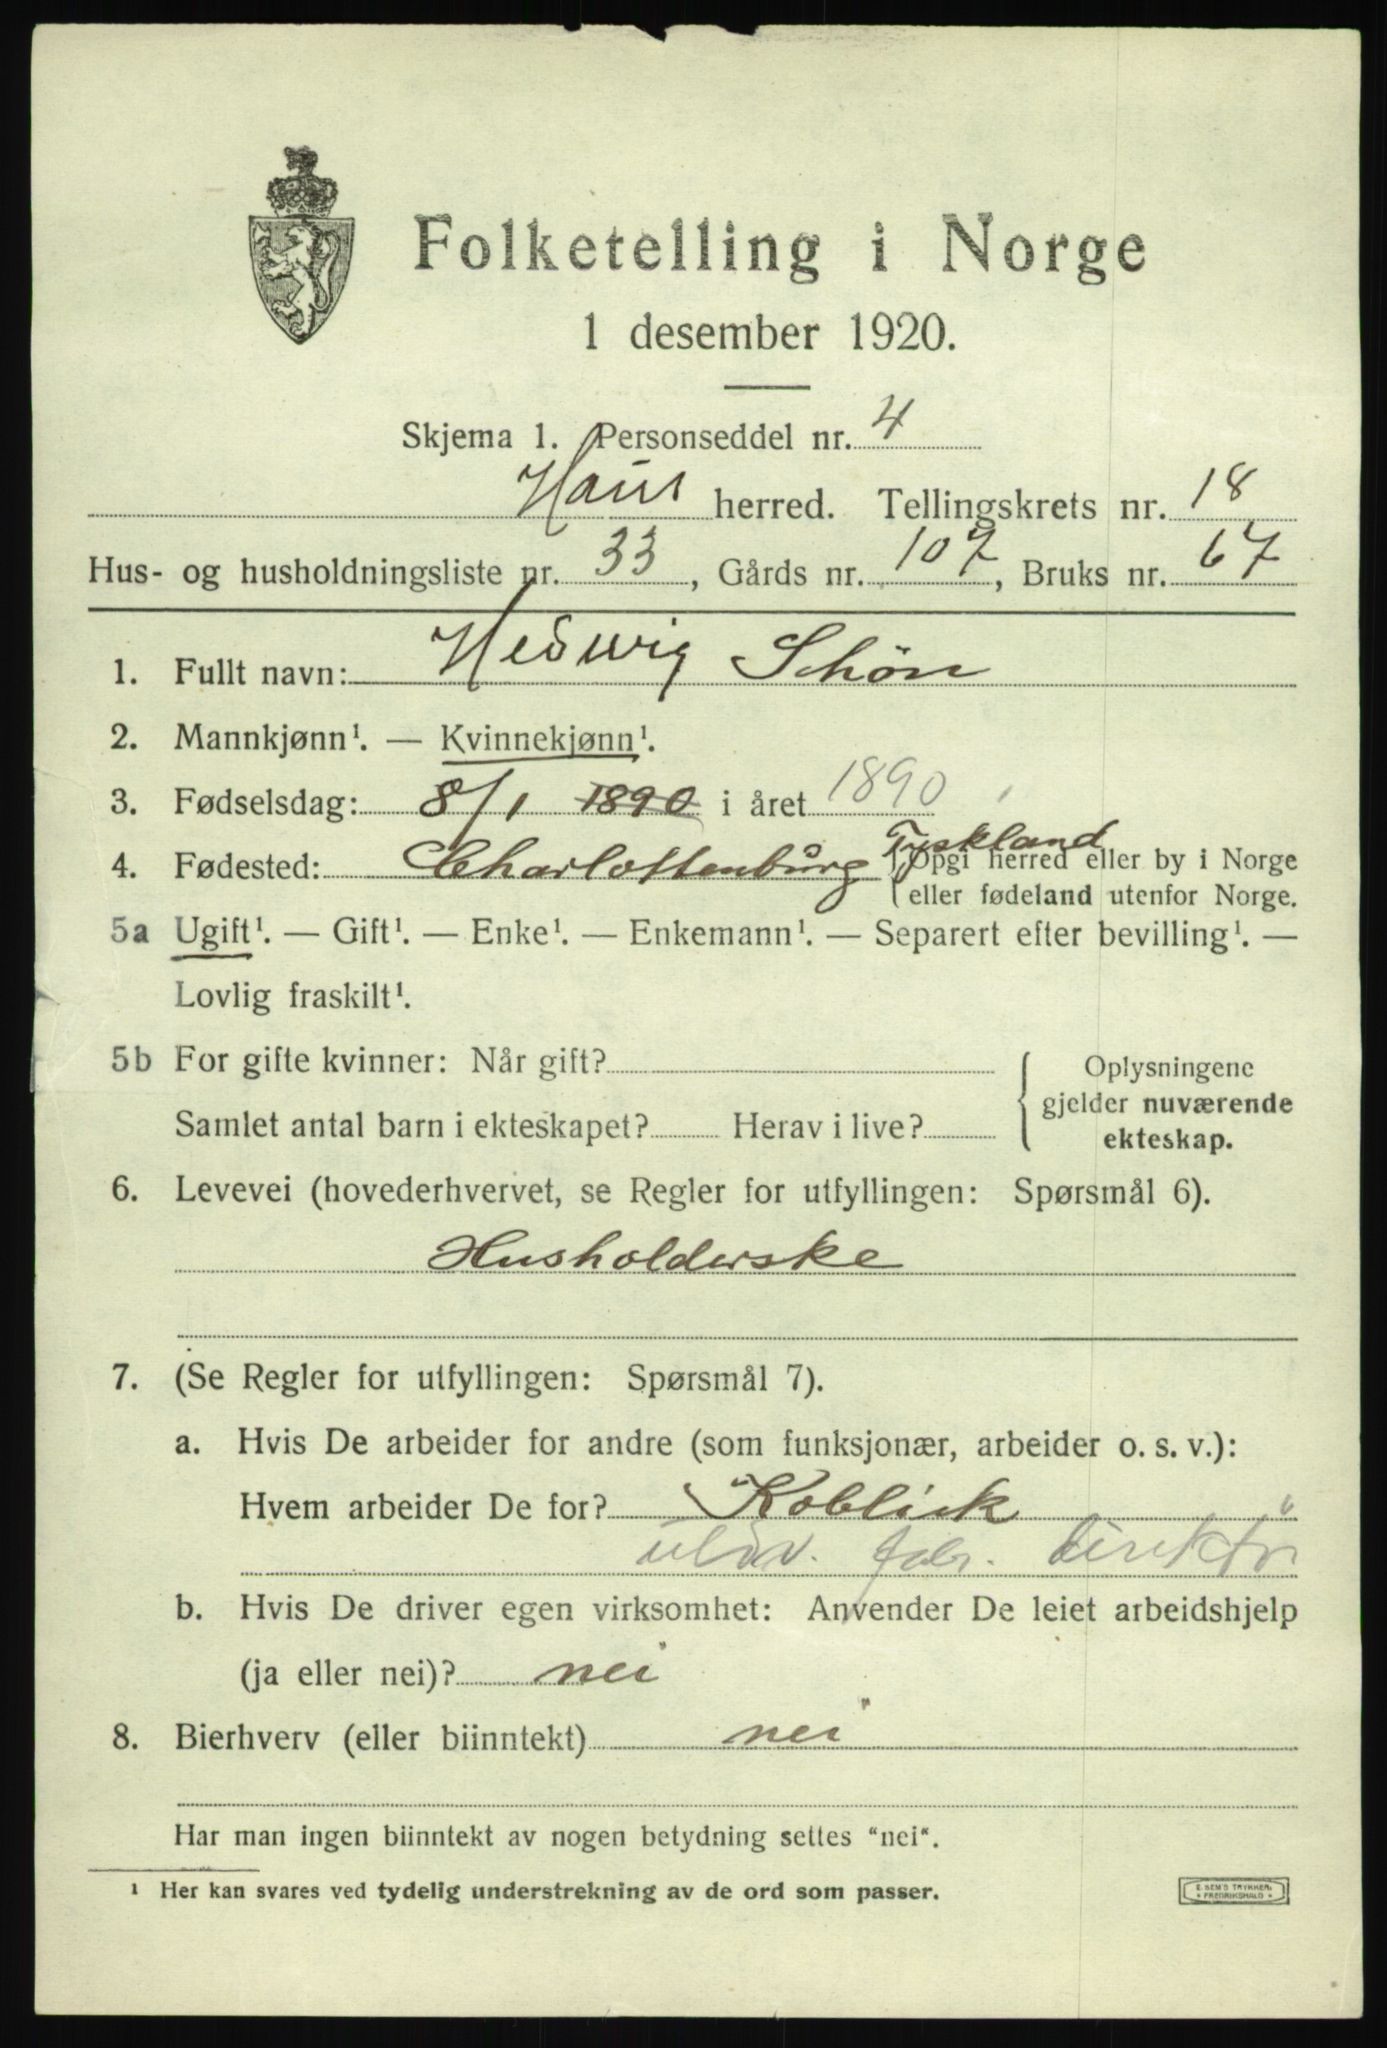 Folketelling i Norge
1 desember 1920.
Skjema 1. Personseddel nr. 4
Haus herred. Tellingskrets nr. 18
Hus- og husholdningsliste nr. 33, Gårds nr. 107, Bruks nr. 67
1. Fullt navn: Hedwig Schön
2. Mannkjønn¹. — Kvinnekjønn¹.
3. Fødselsdag: 8/1 1890 i året 1890
4. Fødested: Charlottenburg Tyskland {Opgi herred eller by i Norge
eller fødeland utenfor Norge.
5a Ugift¹. — Gift¹. — Enke¹. — Enkemann¹. — Separert efter bevilling¹. —
Lovlig fraskilt¹.
5b For gifte kvinner: Når gift?
Samlet antal barn i ekteskapet? Herav i live?
Oplysningene
gjelder nuværende
ekteskap.
6. Levevei (hovederhvervet, se Regler for utfyllingen: Spørsmål 6).
Husholderske
7. (Se Regler for utfyllingen: Spørsmål 7).
a. Hvis De arbeider for andre (som funksjonær, arbeider o. s. v.):
Hvem arbeider De for? Koblick
fabr. direktör
b. Hvis De driver egen virksomhet: Anvender De leiet arbeidshjelp
(ja eller nei)? nei
8. Bierhverv (eller biinntekt) nei
Har man ingen biinntekt av nogen betydning settes "nei".
¹ Her kan svares ved tydelig understrekning av de ord som passer.
E. SEM'S TRYKKERI
FREDRIKSHALD